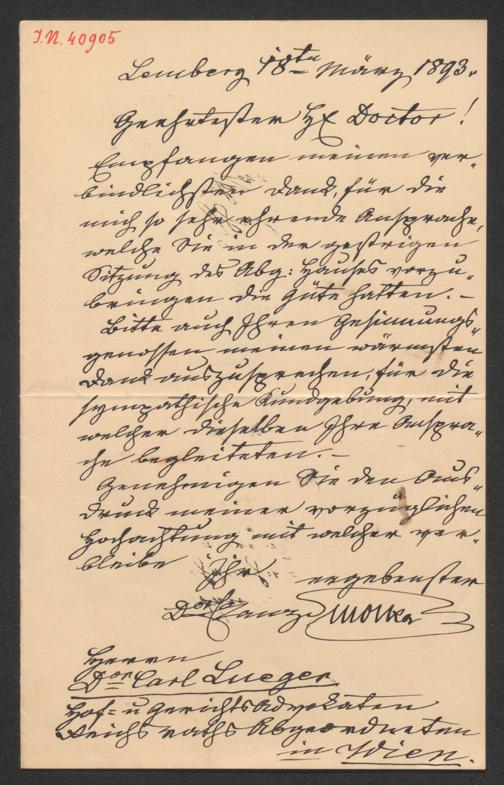 J.N. 40905
Lemberg 18te März 1893.
Geehrtester H Doctor!
Empfangen meinen ver-
bindlichsten Dank, für die
mich so sehr ehrende Ansprache,
welche Sie in der gestrigen
Sitzung des Abg: Hauses vorzu-
bringen die Güte hatten. –
Bitte auch Ihren Gesinnungs-
genossen meinen wärmsten
Dank auszusprechen, für die
sympathische Kundgebung, mit
welcher dieselben Ihre Anspra-
che begleiteten. –
Genehmigen Sie den Aus-
druck meiner vorzüglichen
Hochachtung mit welcher ver-
bleibe Ihr ergebenster
Smolka
Herrn
Dor Carl Lueger
Hof- u Gerichts Advokaten
Reichsraths Abgeordneten
in Wien.